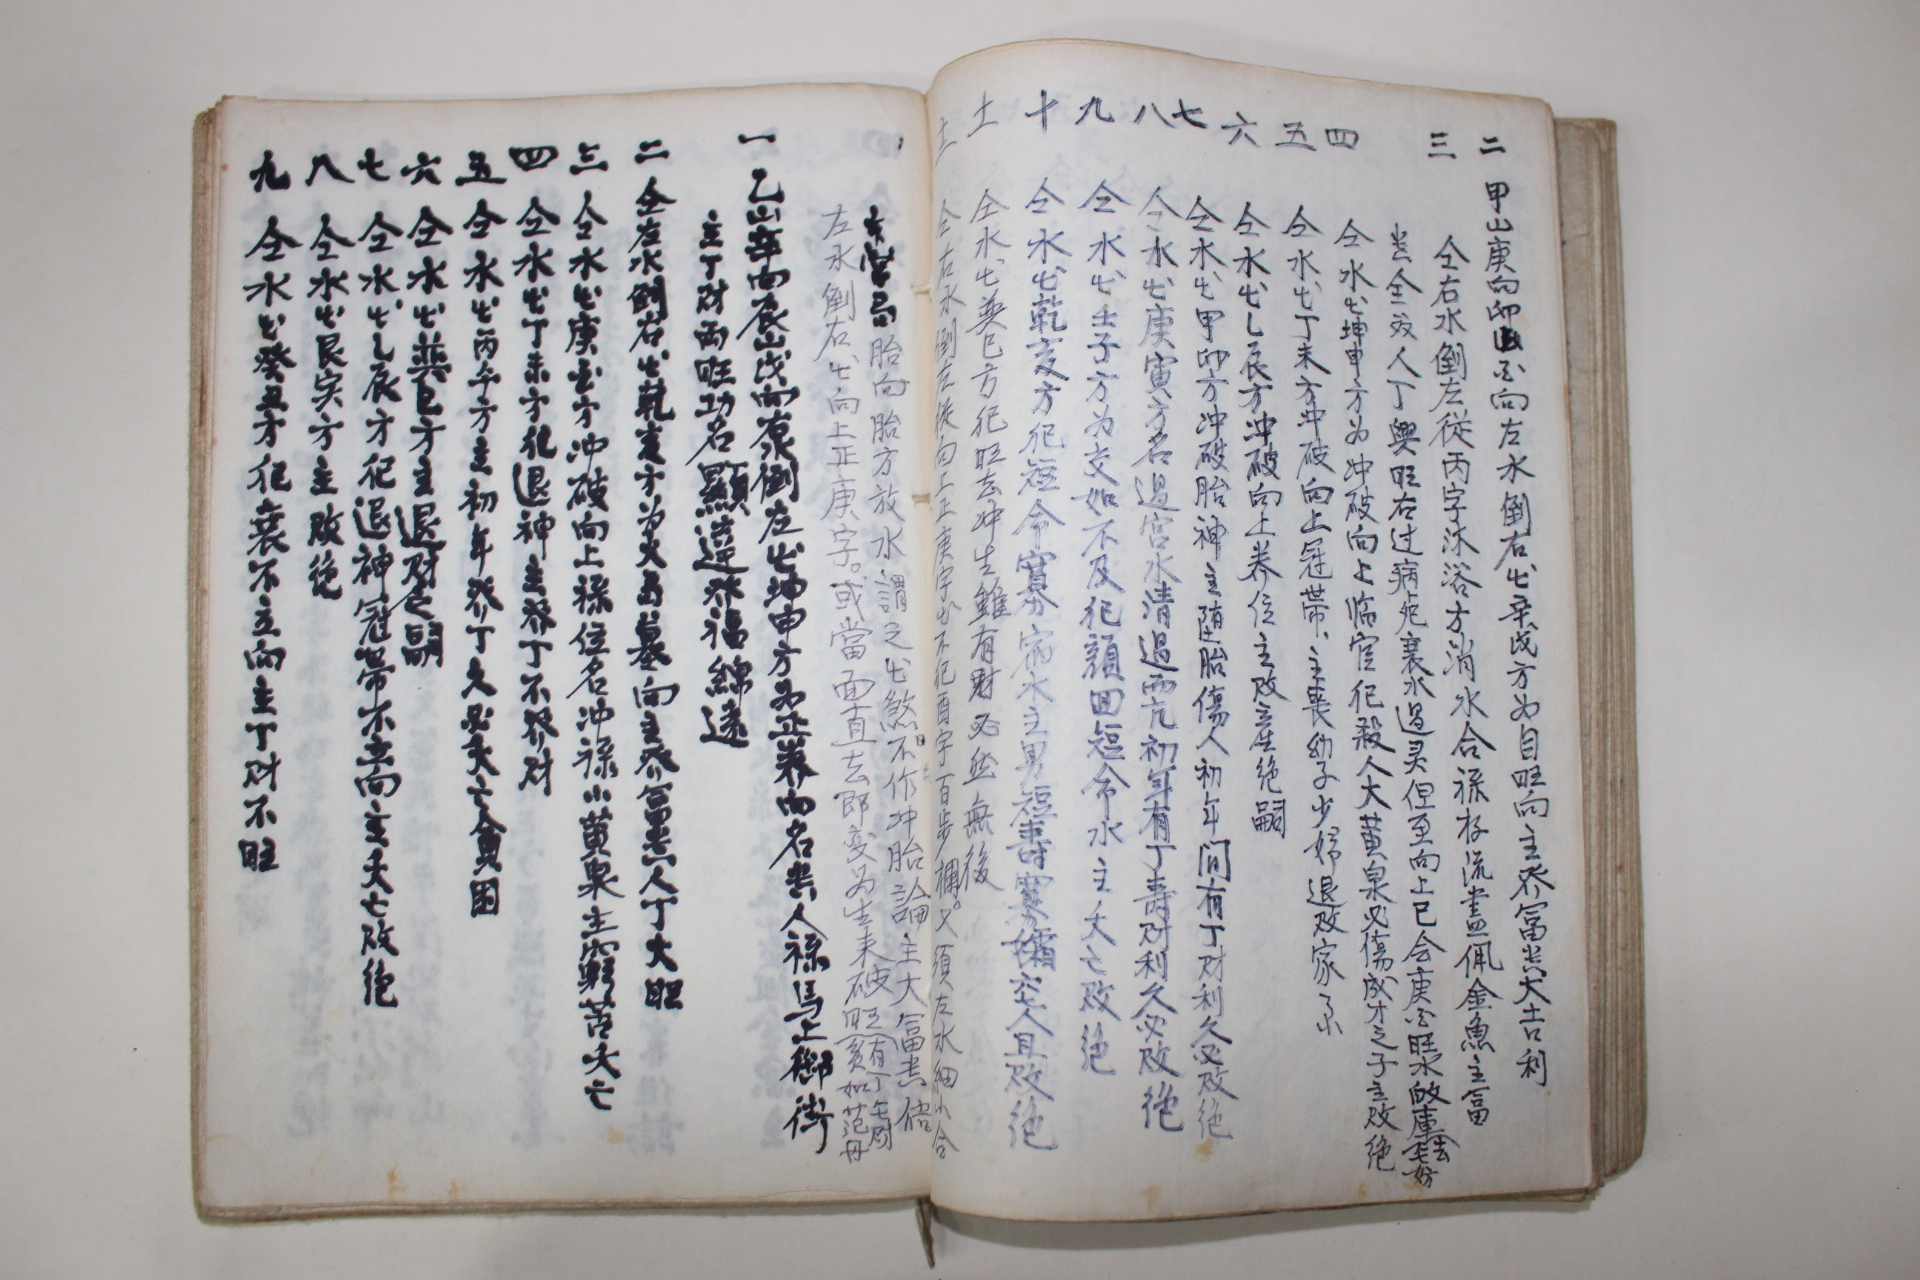 二 甲山庚向卯山酉向左水倒右出辛戌方为自旺向主發富貴大吉利
三 仝右水倒左從丙字沐浴方消水合祿存流盡佩金魚主富
貴仝双人丁興旺右过病死衰水過灵但至向上已会庚酉旺水
四 仝水出坤申方为冲破向上临官犯殺人大黄泉必傷成才之子主败绝
五 仝水出丁未方冲破向上冠帶、主喪幼子少婦退败家
六 仝水出乙辰方冲破向上养位主败産绝嗣
七 仝水出甲卯方冲破胎神主堕胎傷人初年間有丁財利久必败绝
八 仝水出庚寅方名過宮水清過而亢初年有丁壽財利久必败绝
九 仝水出壬子方为交如不及犯顔回短命水主夭亡败绝
十 仝水出乾亥方犯短命寡宿水主男短壽寡孀六人且败绝
士 仝水出巽巳方犯旺去冲生雖有財必然無後
仝右水倒左從向上正庚字出不犯酉字百步襴。又須左水細小合
胎向胎方放水謂之出煞。不作冲胎論主大富貴
左水倒右出向上正庚字。或當面直去即变为生来破旺有丁無財貧如范丹
一 乙山辛向辰山戌向右水倒左出坤申方为正養向名貴人祿馬上御街
主丁財兩旺功名顯達發福綿遠
二 仝左水倒右出乾亥方为火局墓向主發富貴人丁大旺
三 仝水出庚酉方冲破向上祿位名冲祿小黄泉主窮苦夭亡
四 仝水出丁未方犯退神主發丁不發財
五 仝水出丙午方主初年發丁久必夭亡貧困
六 仝水出巽巳方主退財乏嗣
七 仝水出乙辰方犯退神冠帶不立向主夭亡败绝
八 仝水出艮寅方主败绝
九 仝水出癸丑方犯衰不立向主丁財不旺